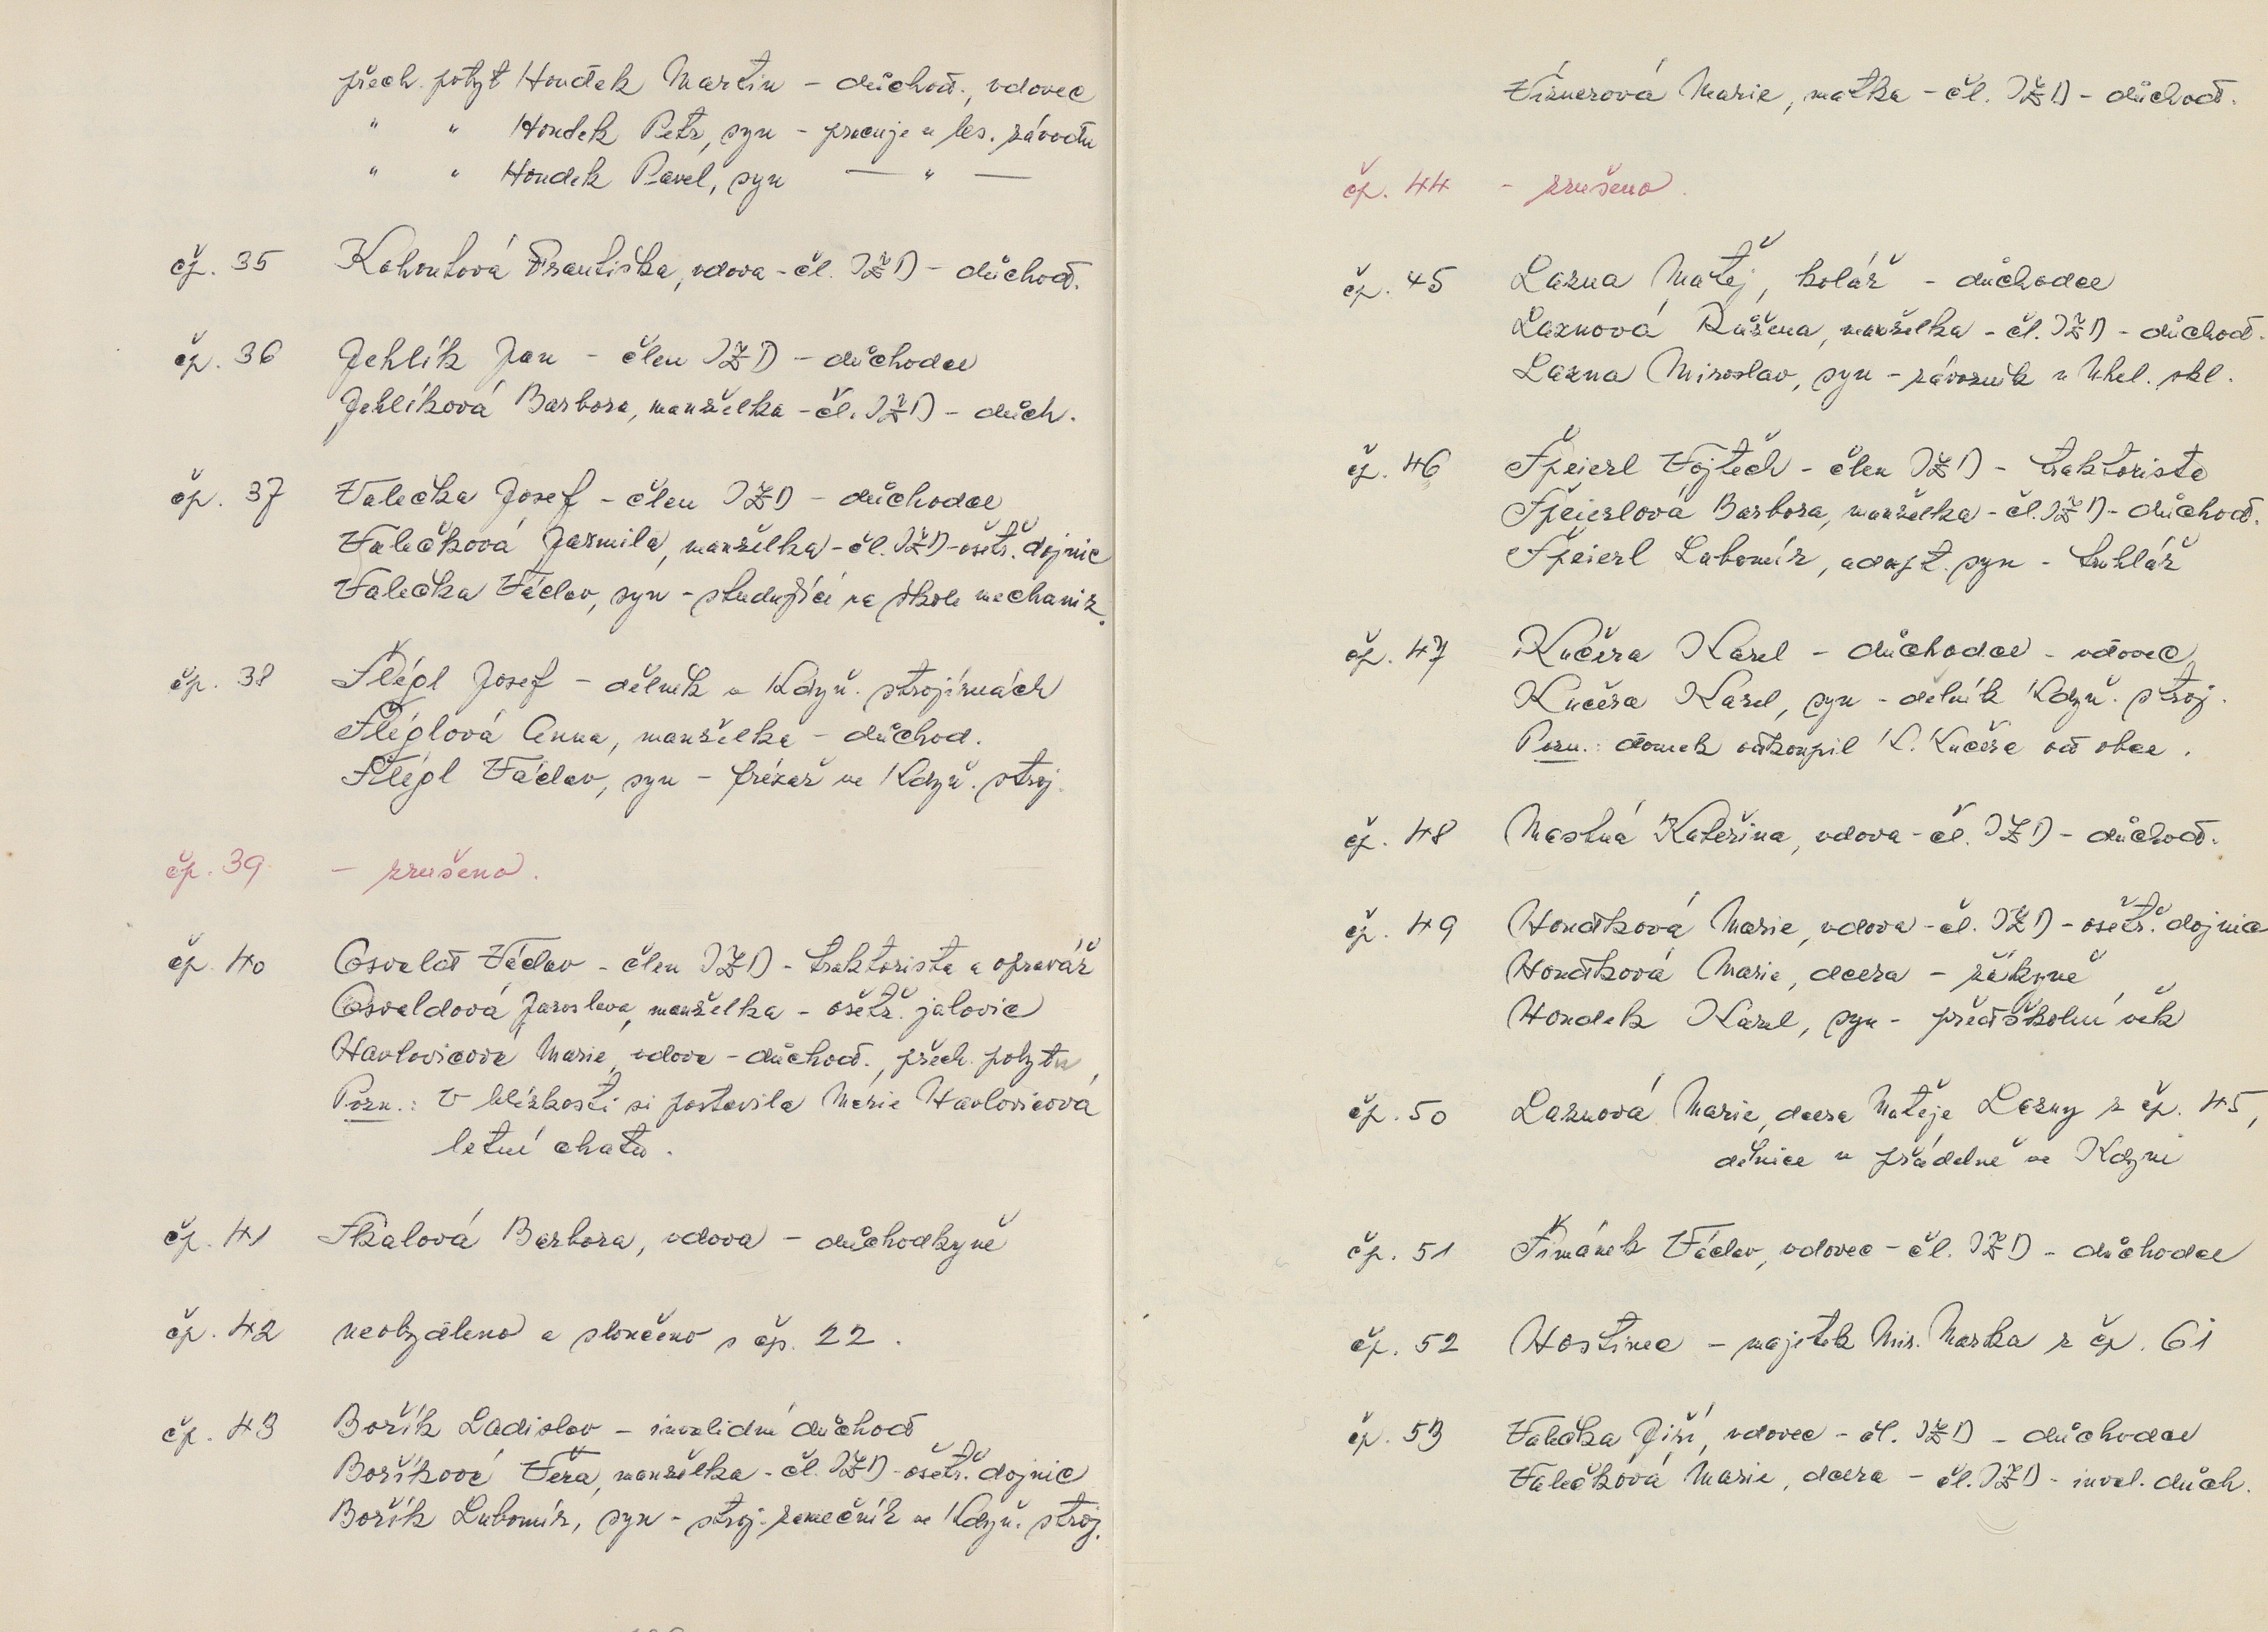 přech. pobyt Houdek Martin - důchod., vdovec
" " Houdek Petr, syn - pracuje u les. závodu
" " Houdek Pavel, syn — " —
čp. 35 Kohoutová Františka, vdova - čl. JZD - důchod.
čp. 36 Jehlík Jan - člen JZD - důchodce
Jehlíková Barbora, manželka - čl. JZD - důch.
čp. 37 Valečka Josef - člen JZD - důchodce
Valečková Jarmila, manželka - čl. JZD - ošetř. dojnic
Valečka Václav, syn - studující na škole mechaniz.
čp. 38 Šlégl Josef - dělník v Kdyň. strojírnách
Šléglová Anna, manželka - důchod.
Šlégl Václav, syn - frézař ve Kdyň. stroj.
čp. 39 - zrušeno.
čp. 40 Osvald Václav - člen JZD - traktorista a opravář
Osvaldová Jaroslava, manželka - ošetř. jalovic
Havlovicová Marie, vdova - důchod., přech. pobytu
Pozn.: V blízkosti si postavila Marie Havlovicová
letní chatu.
čp. 41 Skalová Barbora, vdova - důchodkyně
čp. 42 neobydleno a sloučeno s čp. 22.
čp. 43 Bořík Ladislav - invalidní důchod
Boříková Věra, manželka - čl. JZD - ošetř. dojnic
Bořík Lubomír, syn - stroj. zámečník ve Kdyň. stroj.
Vísnerová Marie, matka - čl. JZD - důchod.
čp. 44 - zrušeno.
čp. 45 Lazna Matěj, kolář - důchodce
Laznová Růžena, manželka - čl. JZD - důchod.
Lazna Miroslav, syn - závozník u Uhel. skl.
čp. 46 Špeierl Vojtěch - člen JZD - traktorista
Špeierlová Barbora, manželka - čl. JZD - důchod.
Špeierl Lubomír, adopt. syn - truhlář
čp. 47 Kučera Karel - důchodce - vdovec
Kučera Karel, syn - dělník Kdyň. stroj.
Pozn.: domek odkoupil K. Kučera od obce.
čp. 48 Mastná Kateřina, vdova - čl. JZD - důchod.
čp. 49 Houdková Marie, vdova - čl. JZD - ošetř. dojnic
Houdková Marie, dcera - žákyně
Houdek Karel, syn - předškolní věk
čp. 50 Laznová Marie, dcera Matěje Lazny z čp. 45,
dělnice v přádelně ve Kdyni
čp. 51 Šimánek Václav, vdovec - čl. JZD - důchodce
čp. 52 Hostinec - majetek Mir. Marka z čp. 61
čp. 53 Valečka Jiří, vdovec - čl. JZD - důchodce
Valečková Marie, dcera - čl. JZD - inval. důch.